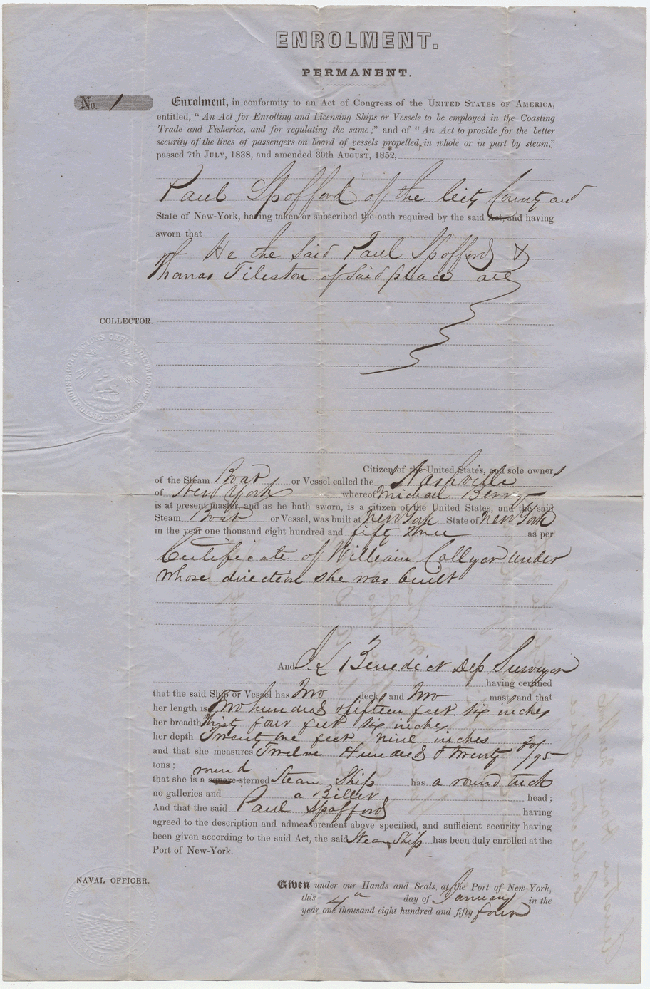 ENROLMENT.
PERMANENT.
No. 1
Enrolment, in conformity to an Act of Congress of the UNITED STATES OF AMERICA,
entitled, "An Act for Enrolling and Licensing Ships or Vessels to be employed in the Coasting
Trade and Fisheries, and for regulating the same;" and of "An Act to provide for the better
security of the lives of passengers on board of vessels propelled, in whole or in part by steam,"
passed 7th JULY, 1838, and amended 30th AUGUST, 1852,
Paul Spofford of the City County and
State of New-York, having taken or subscribed the oath required by the said Act, and having
sworn that
He the said Paul Spofford &
Thomas Tileston of said place are
COLLECTOR
Citizens of the United States, and sole owners
of the Steam Boat or Vessel called the Nashville
of New York whereof Michael Berry
is at present master, and as he hath sworn, is a citizen of the United States, and the said
Steam Boat or Vessel, was built at New York State of New York
in the year one thousand eight hundred and fifty three as per
Certificate of William Collyer under
whose direction she was built
And J L Benedict Dep Surveyor
having certified
that the said Ship or Vessel has Two decks and Two masts and that
her length is Two hundred & fifteen feet six inches
her breadth four feet six inches
her depth Twenty one feet nine inches
and that she measures Twelve Hundred & Twenty /95
tons;
that she is a round square sterned Steam Ship has a round tuck
no galleries and a Billet head;
And that the said Paul Spofford having
agreed to the description and admeasurement above specified, and sufficient security having
been given according to the said Act, the said Steam Ship has been duly enrolled at the
Port of New-York.
NAVAL OFFICER.
Given under our Hands and Seals, at the Port of New-York,
this 4th day of January in the
year one thousand eight hundred and fifty four